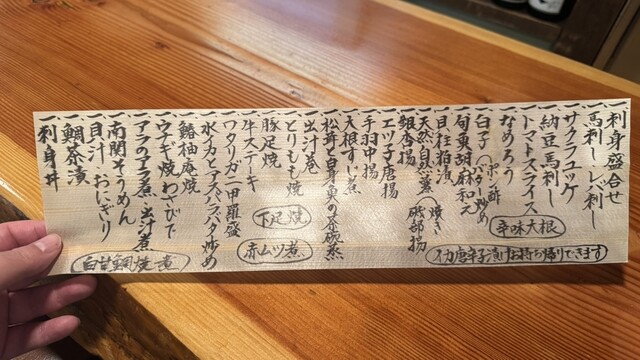 一 刺身盛合せ
一 馬刺し レバ刺し
一 サクラユッケ
一 納豆馬刺し
一 トマトスライス
一 なめろう
一 白子(ポン酢 バター炒め
一 旬東胡麻和え
一 貝柱粕漬
一 天然自然薯(焼き 磯部揚
一 銀杏揚
一 エツ子唐揚
一 手羽中揚
一 大根すじ煮
一 松茸と白身魚の茶碗蒸
一 出汁巻
一 とりもも焼
一 豚足焼
一 牛ステーキ
一 ワタリガニ甲羅盛
一 水イカとアスパラバタ炒め
一 鰆柚庵焼
一 ウナギ焼わさびで
一 アラのアラ煮・出汁煮
一 南関そうめん
一 貝汁 おにぎり
一 鯛茶漬
一 刺身丼
辛味大根
イカ唐辛子漬けお持ち帰りできます
下足焼
赤ムツ煮
白甘鯛焼 煮